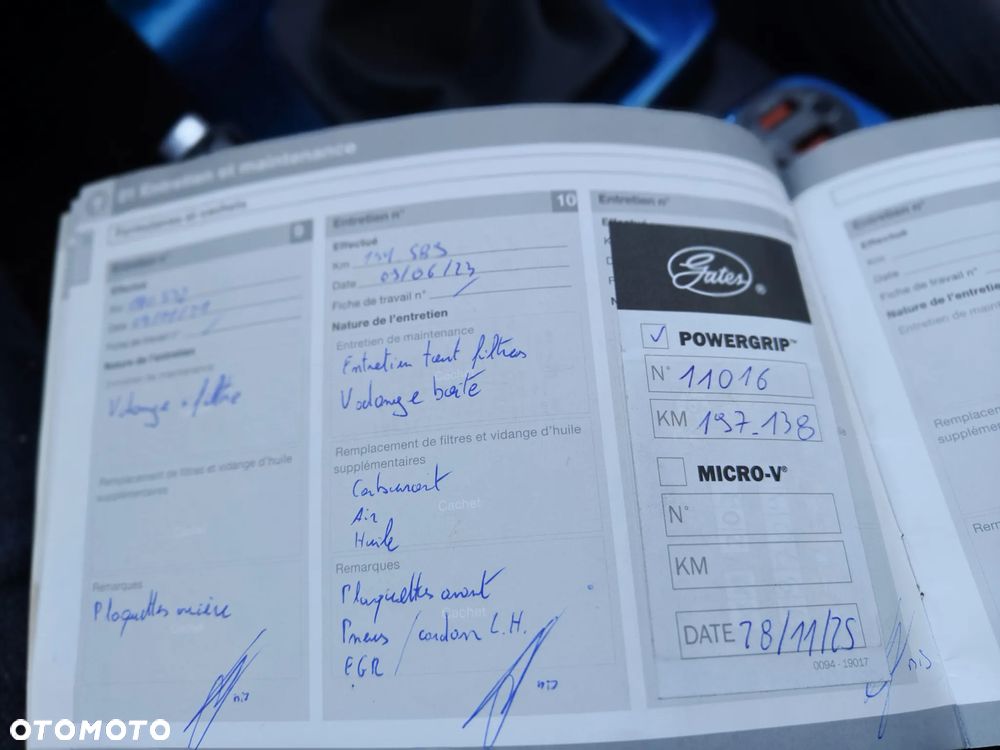 Entretien et maintenance
9
Entretien n°
Effectué
Km
Date
Fiche de travail n°
Nature de l'entretien
Entretien de maintenance
Vidange + filtre
Remplacement de filtres et vidange d'huile
supplémentaires
Cachet
Remarques
Plaquettes arrière
Cachet
Entretien n° 10
Effectué
Km
Date 03/06/23
Fiche de travail n°
Nature de l'entretien
Entretien de maintenance
Entretien tout filtres
Vidange boîte
Remplacement de filtres et vidange d'huile
supplémentaires
Carburant
Cachet
Air
Huile
Remarques
Plaquettes avant
Cachet
Pneus / cardan L.H.
EGR
Entretien n°
Gates®
✓ POWERGRIP™
N° 11016
KM 197-138
MICRO-V®
N°
KM
DATE 28/11/25
0094 - 19017
Entretien n°
Effectué
Km
Date
Fiche de travail n°
Nature de l'entretien
Entretien de maintenance
OTOMOTO